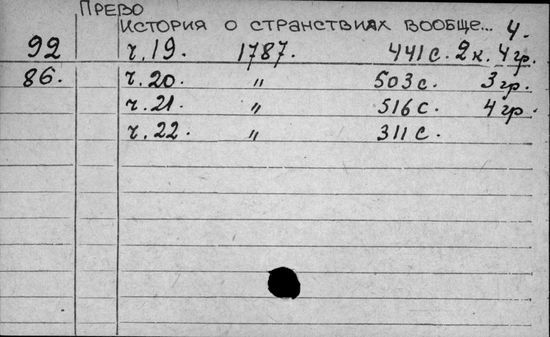 Прево
История о странствиях вообще... 4.
92 ч.19. 1787. 441с. 2к. 4гр.
86. ч.20. " 503с. 3гр.
ч.21. " 516с. 4гр.
ч.22. " 311с.